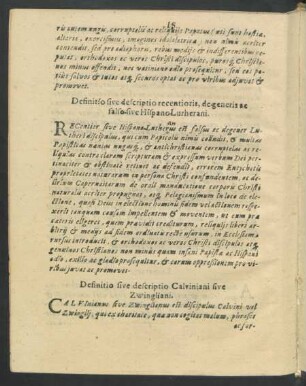 18
ris autem nugis, corruptelis ac reliquiis Papisticis, uti sunt hostia,
altaris, exorcismus, imagines
contendit, sed pro adiaphoris, rebus mediis & indifferentibus re-
putat, orthodoxos ac veros Christi discipulos, puros Christia-
nos minus offendit, nec hostiliter odio prosequitur, sed eos po-
tius salvos & tutos securos optat ac pro viribus adjuvat &
promovet.
Definitio sive descriptio recentioris, degeneris ac
falsi sive Hispano-Lutherani.
REcentior sive Hispano-Lutheranus est falsus ac degener Lu-
theri discipulus, qui cum Papicolis nimis colludit, & multas
Papisticas nænias nugasq, & antichristianas corruptelas ac re-
liquias contra clarum scriptum & expressum verbum Dei per-
tinaciter & obstinate retinet ac defendit, errorem Eutychetis
proprietates naturarum in persona Christi confundentem, ac de-
lirium Capernaitarum de orali manducatione corporis Christi
naturalis acriter propugnat, atq Pelagianismum in loco de ele-
ctione, quasi Deus in electione hominis fidem vel actionem
veniret tanquam causam impellentem & moventem, ut cum præ-
cateris elegeret, quem præviderit crediturum, reliquias liberi ar-
bitrii & mentis ad fidem ordinatæ recte usurum, in Ecclesiam
rursus introducit, & orthodoxos ac veros Christi discipulos atq
genuinos Christianos non minus quam insani Papistæ ac Hispani
odio, exilio ac gladio prosequitur, & eorum oppressionem pro vi-
ribus juvat ac promovet.
Definitio sive descriptio Calviniani sive
Zvvingliani.
CALVInianus sive Zwinglianus est discipulus Calvini vel
Zwinglii, qui ex charitate, qua non cogitat malum, plerosq